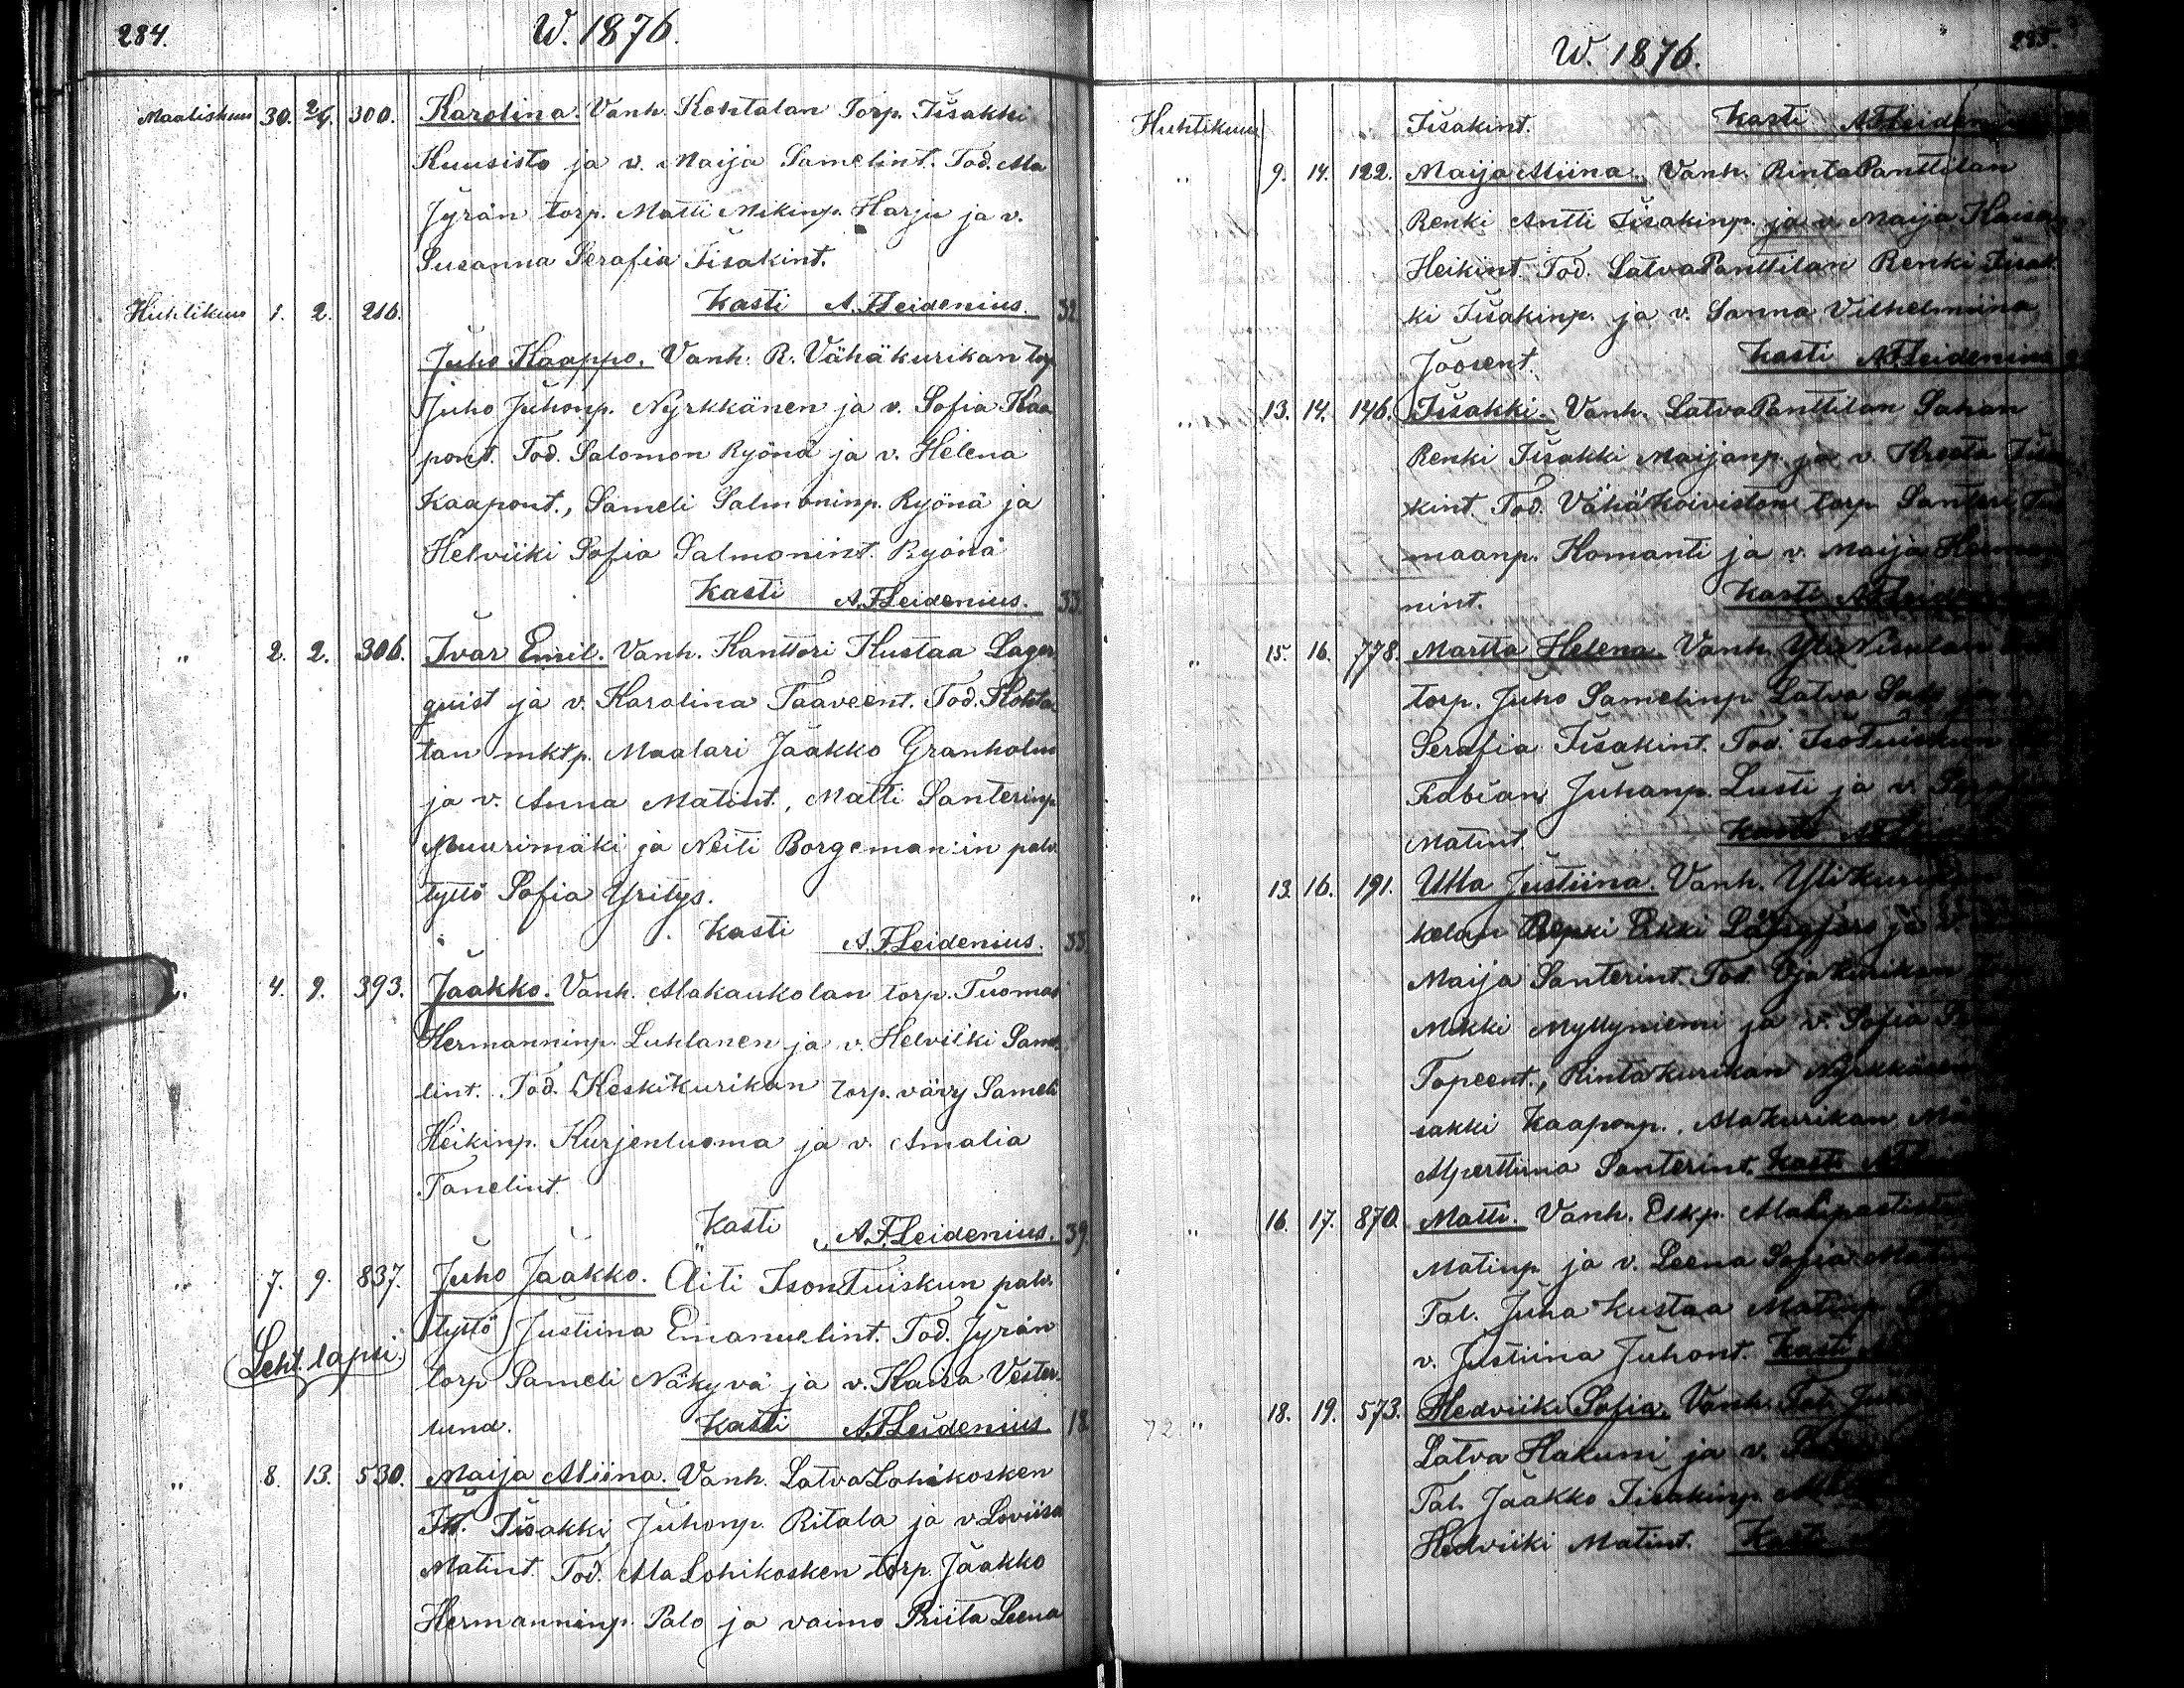 284.
W. 1876.
Maaliskuu 30. 2/4. 300. Karolina. Vanh. Kohtalan Torp. Iisakki
Kuusisto ja v. Maija Samelint. Tod. Ala
Jyrän torp. Matti Mikinp. Harju ja v.
Susanna Serafia Iisakint.
Kasti A.F.Leidenius. 32
Huhtikuu 1. 2. 216.
Juho Kaappo. Vanh. R. Vähäkurikan torp
Juho Juhonp. Nyrkkänen ja v. Sofia Kaa
pont. Tod. Salomon Ryönä ja v. Helena
Kaapont., Sameli Salmoninp. Ryönä ja
Helviiki Sofia Salmonint. Ryönä
Kasti A.F.Leidenius. 33.
" 2. 2. 306. Ivar Emil. Vanh. Kanttori Kustaa Lager
quist ja v. Karolina Taaveent. Tod. Kohta
lan mktp. Maalari Jaakko Granholm
ja v. Anna Matint., Matti Santerinp
Muurimäki ja Neiti Borgeman:in palv.
tyttö Sofia Yritys.
Kasti A.F.Leidenius. 33.
4. 9. 393. Jaakko. Vanh. Alakaukolan torp. Tuomas
Hermanninp. Luhlanen ja v. Helviiki Same
lint. Tod. Keskikurikan torp. vävy Sameli
Heikinp. Kurjenluoma ja v. Amalia
Tanelint.
Kasti A.F.Leidenius. 39
" 7. 9. 837. Juho Jaakko. Äiti IsonTuiskun palv.
Leht. lapsi. tyttö Justiina Emanuelint. Tod. Jyrän
torp Sameli Näkyvä ja v. Kaisa Vester
lund. Kasti A.F.Leidenius. 18
" 8. 13. 530. Maija Aliina. Vanh. LatvaLohikosken
Itl. Iisakki Juhonp. Ritala ja v. Loviisa
Matint. Tod. AlaLohikosken torp. Jaakko
Hermanninp. Palo ja vaimo Priita Leena
285.
W. 1876.
Huhtikuu Iisakint. Kasti A.F.Leidenius
" 9. 14. 122. Maija Aliina. Vanh. RintaPanttilan
Renki Antti Iisakinp. ja v. Maija Kaisa
Heikint. Tod. LatvaPanttilan Renki Iisak
ki Iisakinp. ja v. Sanna Vilhelmiina
Joosent. Kasti A.F.Leidenius
" 13. 14. 146. Iisakki. Vanh. LatvaPanttilan Sahan
Renki Iisakki Maijanp. ja v. Kreeta Iisa
kint. Tod. VähäKoiviston torp. Santeri
maanp. Komanti ja v. Maija Herman
nint. Kasti A.F.Leidenius
" 15. 16. 778. Martta Helena. Vanh. YliNisulan
torp. Juho Samelinp Latva
Serafia Iisakint. Tod. IsoTuiskun
Fabian Juhanp. Lusti ja v.
Matint. Kasti
" 13. 16. 191. Ulla Justiina. Vanh.
Renki Erkki
Maija Santerint. Tod.
Mikki Myllyniemi ja v. Sofia
Topeent., Rintakurikan Nyrkkäsen
sakki Kaaponp., Alakurikan
Alperttiina Santerint. Kasti
" 16. 17. 870. Matti. Vanh. Elkp.
Matinp ja v. Leena Sofia
Tal. Juha Kustaa Matinp
v. Justiina Juhont. Kasti
72. " 18. 19. 573. Hedviiki Sofia. Vanh. Tal.
Latva Hakuni ja v.
Tal. Jaakko Iisakinp.
Hedviiki Matint. Kasti